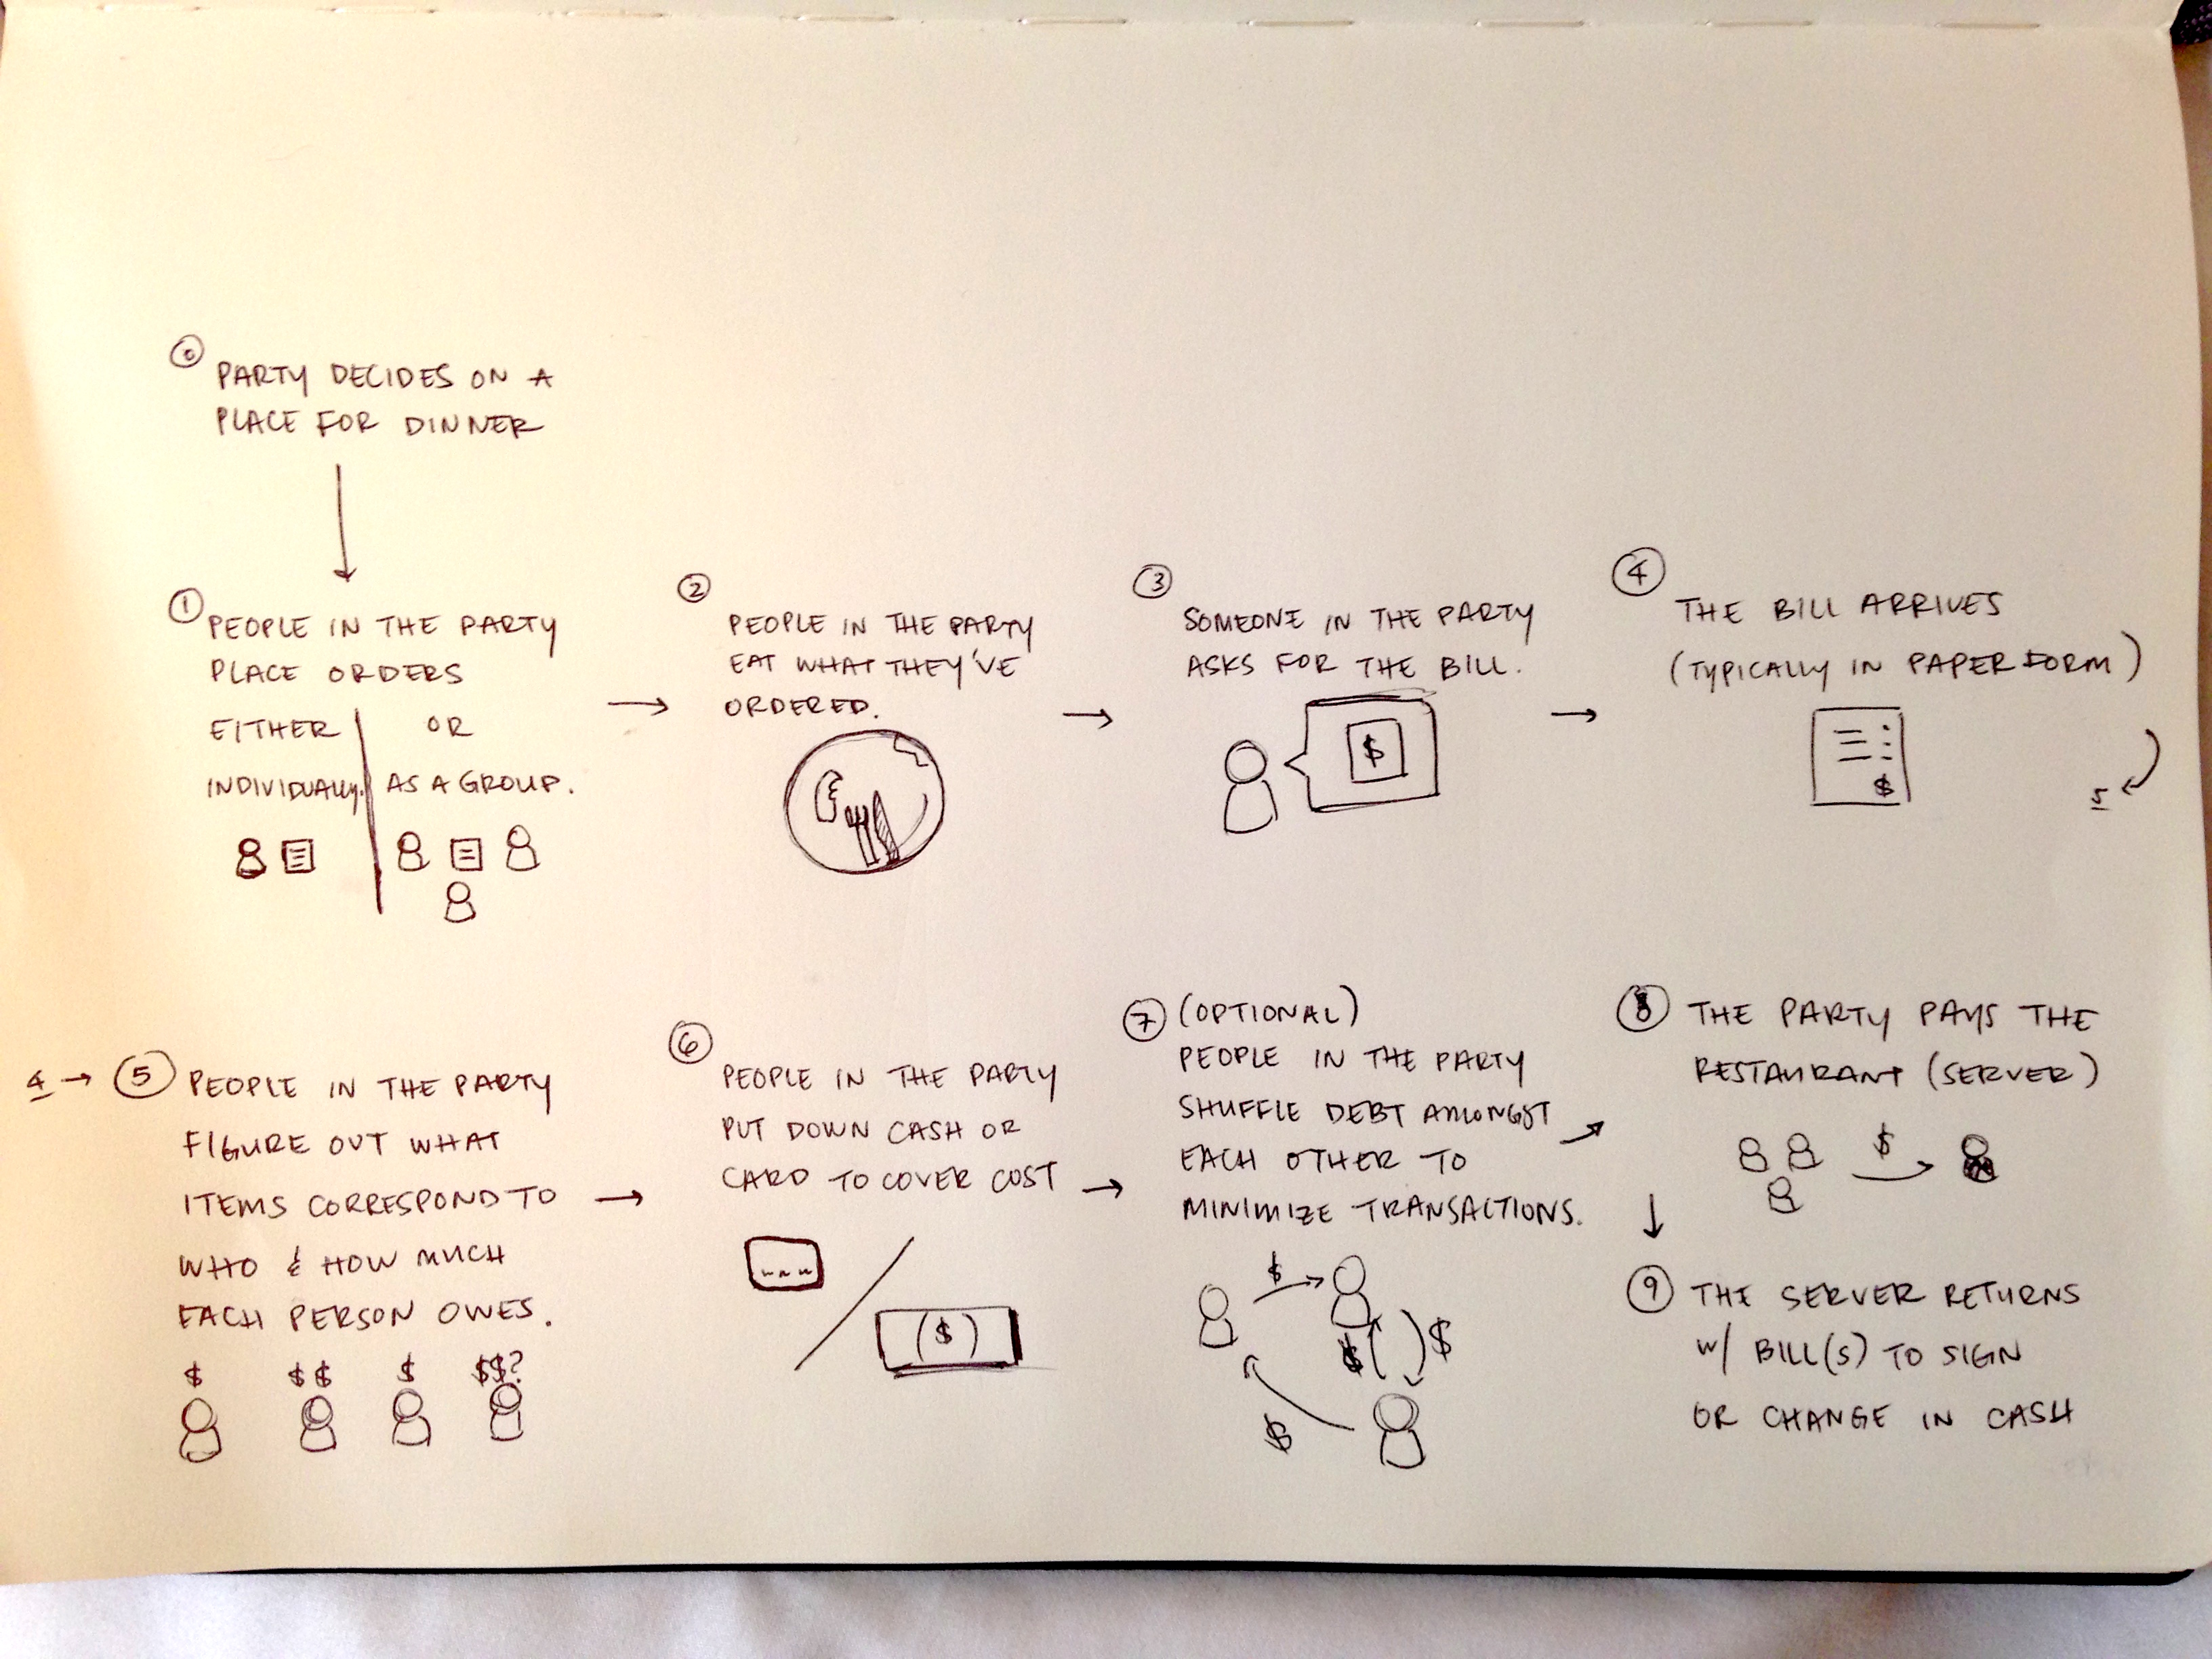 0 PARTY DECIDES ON A
PLACE FOR DINNER
1 PEOPLE IN THE PARTY
PLACE ORDERS
EITHER OR
INDIVIDUALLY. AS A GROUP.
2
PEOPLE IN THE PARTY
EAT WHAT THEY'VE
ORDERED.
3
SOMEONE IN THE PARTY
ASKS FOR THE BILL.
$
4
THE BILL ARRIVES
(TYPICALLY IN PAPER FORM)
$
5
4 → 5 PEOPLE IN THE PARTY
FIGURE OUT WHAT
ITEMS CORRESPOND TO
WHO & HOW MUCH
EACH PERSON OWES.
$ $$ $ $$?
6
PEOPLE IN THE PARTY
PUT DOWN CASH OR
CARD TO COVER COST
($)
7 (OPTIONAL)
PEOPLE IN THE PARTY
SHUFFLE DEBT AMONGST
EACH OTHER TO
MINIMIZE TRANSACTIONS.
$
$ $
$
8 THE PARTY PAYS THE
RESTAURANT (SERVER)
$
9 THE SERVER RETURNS
W/ BILL(S) TO SIGN
OR CHANGE IN CASH